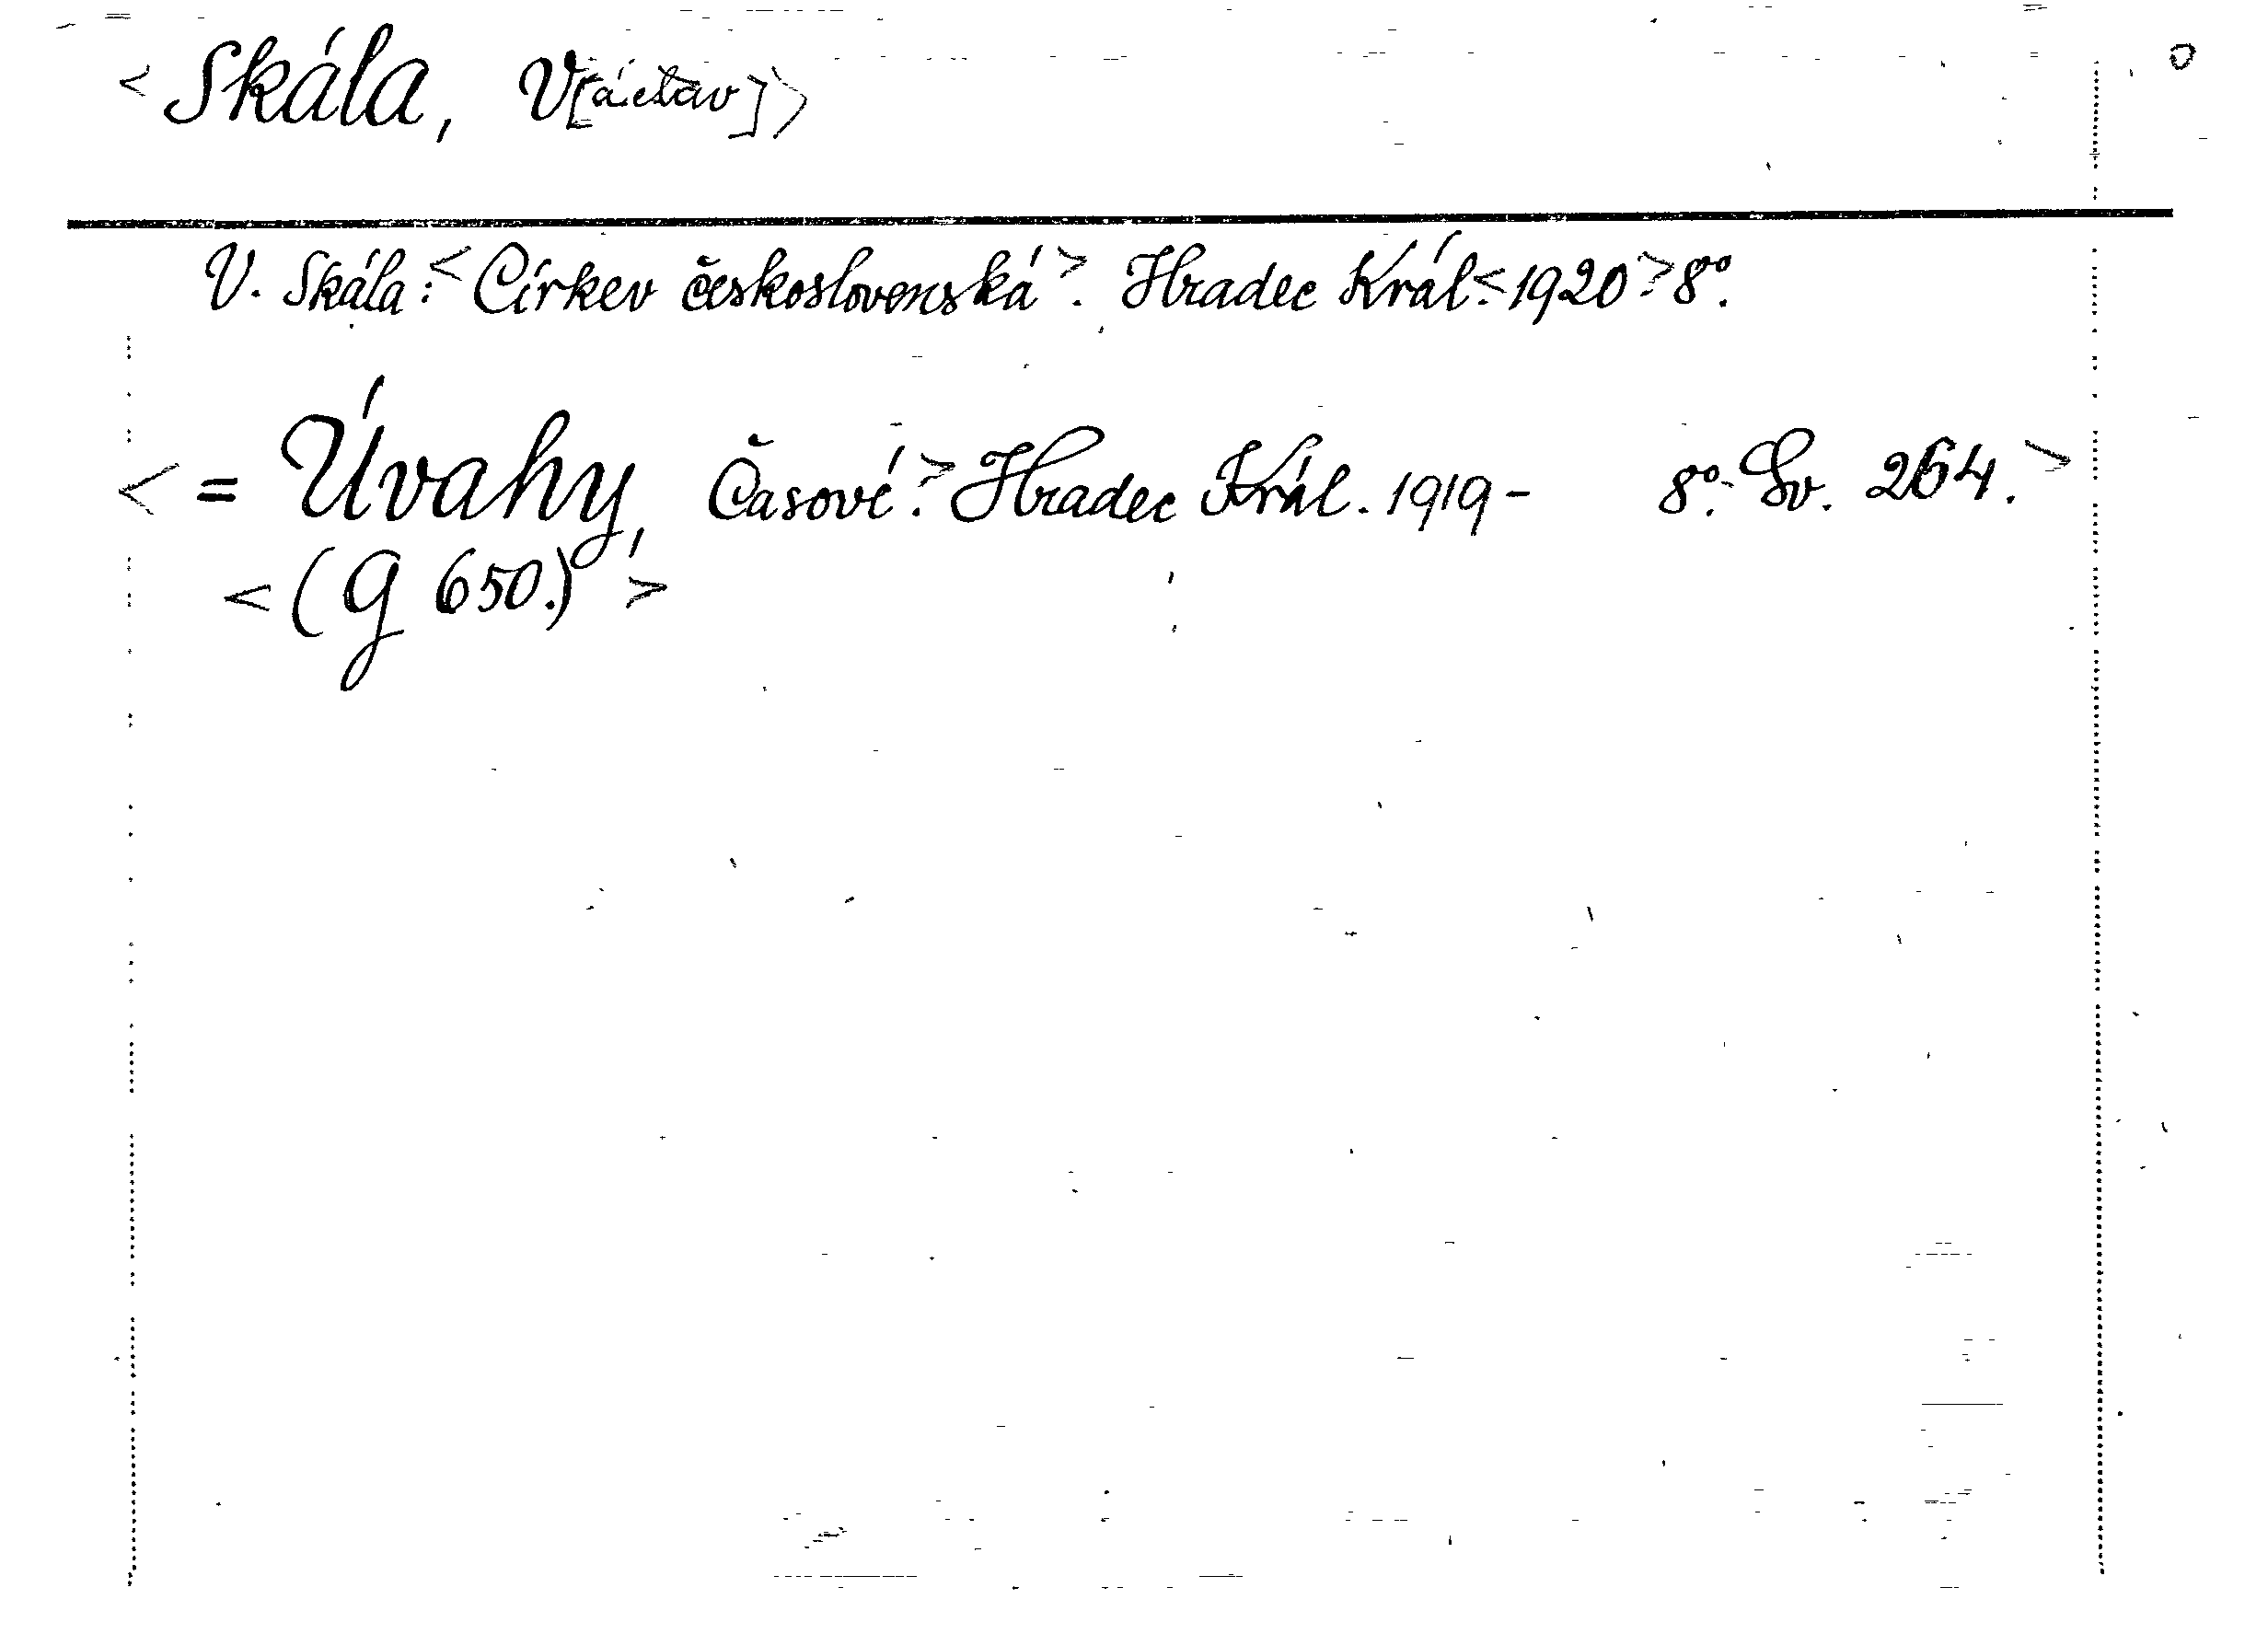 <Skála, V[áclav]>
V. Skála: <Církev československá>. Hradec Král. <1920> 8º.
<= Úvahy, Časové.> Hradec Král. 1919- 8º. Sv. 264.>
<(G 650.)>